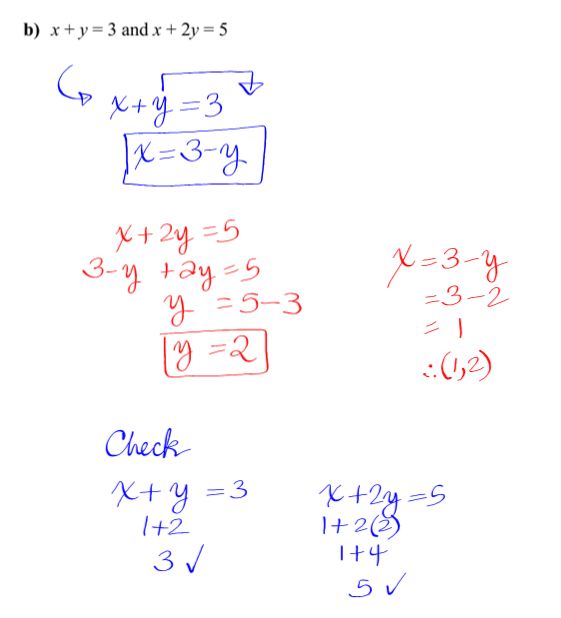 b) x + y = 3 and x + 2y = 5
x+y=3
x=3-y
x+2y=5
3-y+2y=5
y=5-3
y=2
x=3-y
=3-2
=1
∴(1,2)
Check
x+y=3
1+2
3✓
x+2y=5
1+2(2)
1+4
5✓